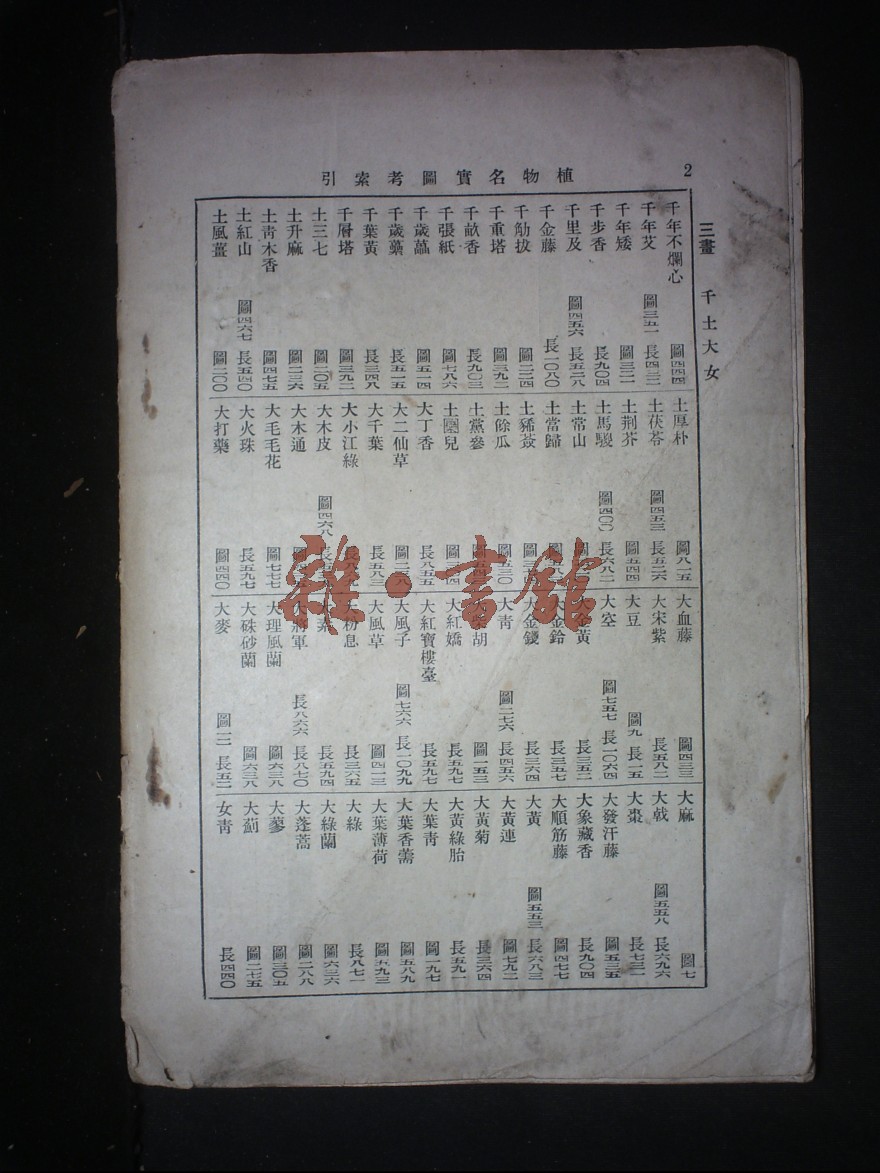 2
植物名實圖考索引
三畫 千土大女
千年不爛心 圖四四四
千年艾 圖三五一 長四二二
千年矮 圖三二一
千步香 長九〇四
千里及 圖四五六 長五二八
千金藤 長一〇八〇
千觔拔 圖二二四
千重塔 圖三九二
千畝香 長九〇三
千張紙 圖七八六
千歲藟 圖五一四
千歲蘽 長五一五
千葉黃 長三四八
千層塔 圖三九二
土三七 圖二〇五
土升麻 圖二三六
土靑木香 圖四七五
土紅山 圖四六七 長五四〇
土風薑 圖二〇〇
土厚朴 圖八一五
土茯苓 圖四五三 長五二六
土荆芥 圖五四四
土馬騣 圖四〇〇 長六八二
土常山
土當歸
土豨薟
土餘瓜 圖五三〇
土黨參
土圞兒
大丁香 長八五五
大二仙草
大千葉 長五八三
大小江綠
大木皮 圖四六八
大木通
大毛毛花 圖七七七
大火珠 長五九七
大打藥 圖四四〇
大血藤 圖四三三
大宋紫 長五八二
大豆 圖九 長一五
大空 圖七五七 長一〇六四
大金黃 長三五二
大金鈴 長三五七
大金錢 長三六四
大靑 圖二七六 長四五六
大柴胡 圖一五三
大紅嬌 長五九七
大紅寶樓臺 長五九七
大風子 圖七六六 長一〇九九
大風草 圖四一三
大粉息 長三六五
大素 長五九四
大將軍 長八六六 長八七〇
大理風蘭 圖六三八
大硃砂蘭 圖六三八
大麥 長五二
大麻 圖七
大戟 圖五五八 長六九六
大棗 長七三一
大發汗藤 圖五三五
大象藏香 長九〇四
大順筋藤 圖四七七
大黃 圖五五三 長六八三
大黃連 圖七九二
大黃菊 長三六四
大黃綠胎 長五九一
大葉靑 圖一九七
大葉香薷 圖五八九
大葉薄荷 圖五九三
大綠 長八七一
大綠蘭 圖六三六
大蓬蒿 圖二八八
大蓼 圖三〇五
大薊 圖二七五
女靑 長四四〇
雜·書館